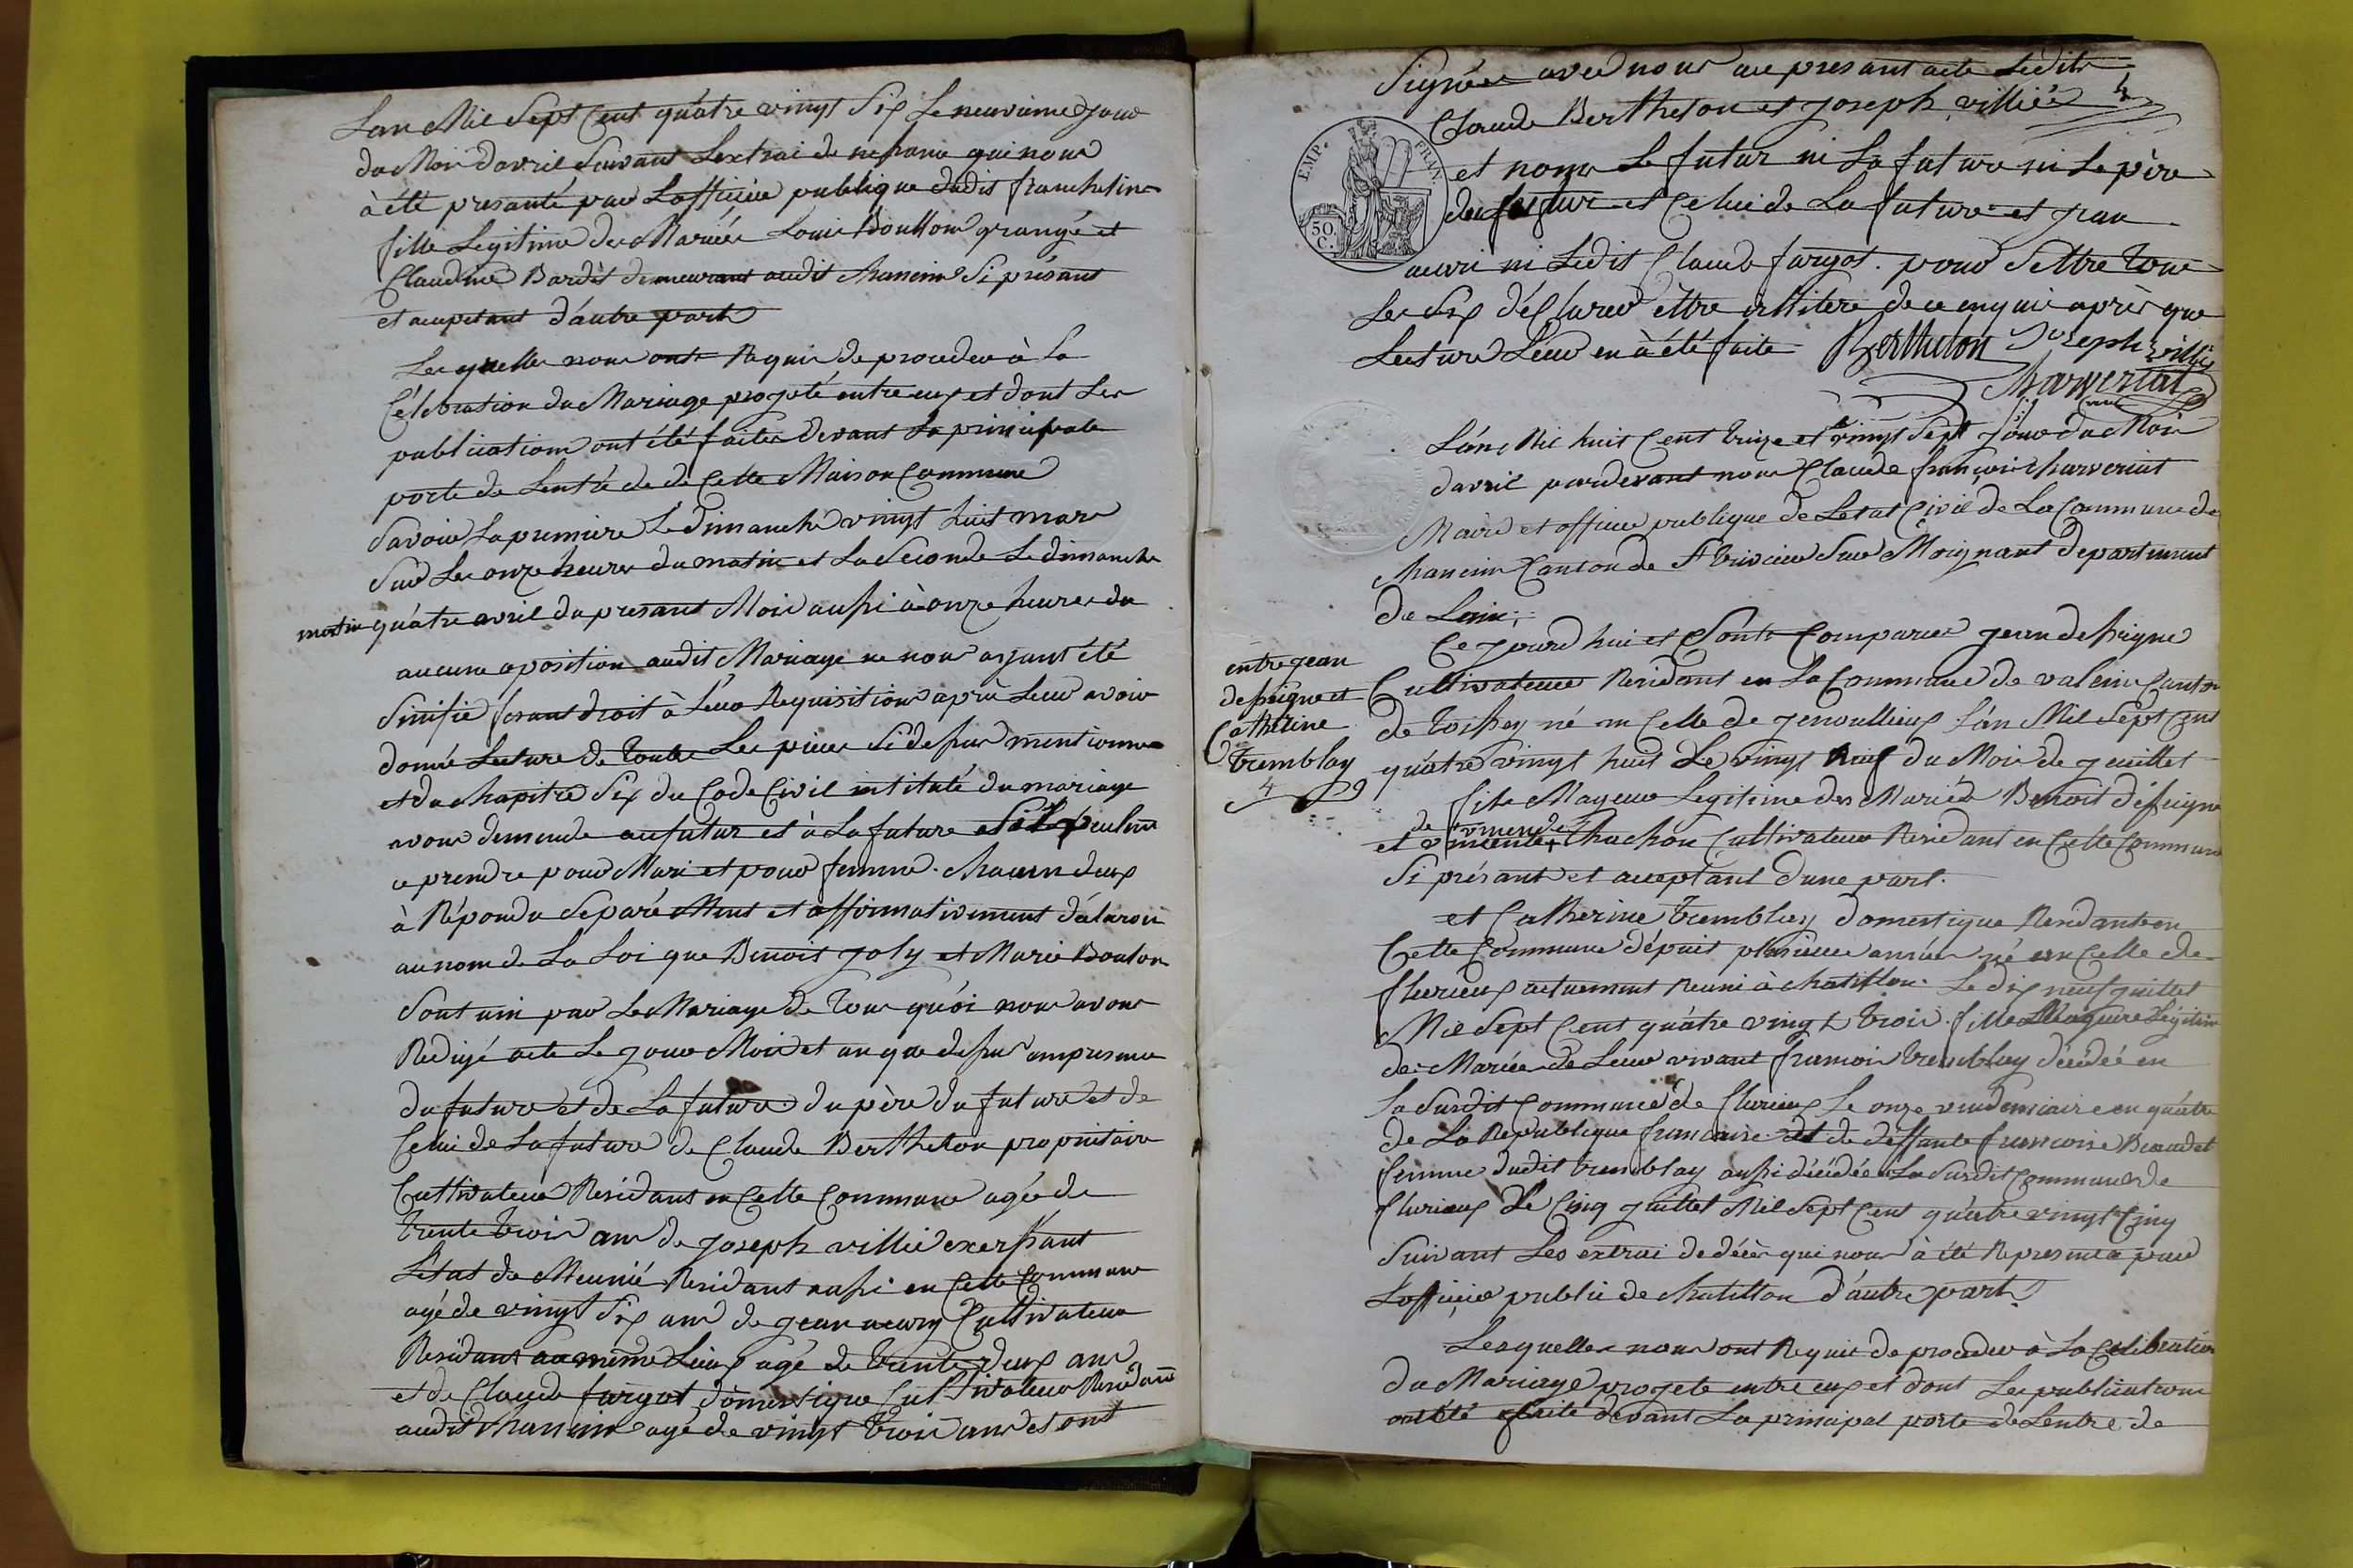 Lan Mil Sept Cent quátre vingt Six Le neuviéme Jour
du Moi davril Suivant Lextrai de nessance qui nous
à été presanté par Lofficier publique dudit francheleins
fille Legitime des Mariées Louis Boullon grangé et
Claudine Bardèt demeurant audit Chaneins Si présant
et acceptant d'autre part
Les quelles nous ont Requis de proceder à La
Célebration du Mariage projeté entre eux et dont Les
publications ont été faites devant La principale
porte de Lentré de de Cette Maison Commune
Savoir La premiere Le dimanche vingt huit mars
Sur Les onze heures du matin et La Seconde Le dimanche
quátre avril du presant Mois aussi à onze heures du
matin
aucune oposition audit Mariage ne nous ayant été
Sinifié fesant droit à Leur Requisition après Leur avoir
donné Lecture de Toutes Les pieces Sidessus mentionnes
et du Chapitre Six du Code Civil intitulé du mariage
avons demendé au futur et à La future Sil veulent
ce prendre pour Mari et pour femme. Chacun deux
à Répondu Séparément et affirmativement déclarons
au nom de La Loi que Benoit Joly et Marie Boulon
Sont uni par Le Mariage de Tous quói nous avons
Redigé acte Le Jour Mois et an que dessus en presence
du future et de La future du père du future et de
Celui de La future de Claude Berthelon propriétaire
Cultivateur Residant en Cette Commune agé de
Trente Trois ans de Joseph villié exersant
L'état de Meunié Residant aussi en Cette Commune
agé de vingt Six ans de Jean acurry Cultivateur
Residant au même Lieux agé de Trente deux ans
et de Claude fargot dómestique Cultivateur Residant
audit Chaneins agé de vingt Trois ans et ont
Signées avec nous au presant acte Ledits
4
Claude Berthelon et Joseph villiée
EMP. FRAN.
50 C.
et nome Le futur ni La future ni Le père
du futur et Celui de La future et Jean
acuri ni Ledit Claude fargot. pour Settre Tous
Les Six déClarer éttre illitere de ce enquis après que
Lecture Leur en à été faite Berthelon Joseph villie
Charveriat
maire
Lán Mil huit Cent Treize et le vingt Sept Jour du Moi
davril pardevant nous Claude françois Charveriat
Maire et officier publique de Letat Civil de La Commune de
Chaneins Canton de St Trivier Sur Moignant departement
de Lain;
entre jean
dessigne et
Catherine
Tremblay
4
Ce Jourd hui et Sont Comparue jean dessigne
Cultivateur Residant en La Commune de valeins Canton
de Toissey né en Celle de genoullieux Lán Mil Sept Cent
quátre vingt huit Le vingt neuf du Moi de juillet
fils Mageur Legitime des Mariés Benoit déssigne
de vimende
et vincente + Chachon Cultivateur Residant en Cette Commune
Si présant et acceptant dune part.
et Catherine Tremblay domestique Residant en
Cette Commune dépuit plusieur année né en Celle de
fleurieux actuement Reuni à Chatillon. Le dix neuf juillet
Mil Sept Cent quátre vingt Trois. fille Mageure Légitime
des Mariés de Leur vivant francois Tremblay décédéé en
La Susdit Commune de flurieux Le onze vendemiaire en quatre
de La Republique francaise et de deffante francoise Beaudet
femme dudit Tremblay aussi décédée à La Susdit Commune de
flurieux Le Cinq juillet Mil Sept Cent quátre vingt Cinq
Suivant Les extrai de décès qui nous à été Representé par
Lofficier public de Chatillon d'autre part
Lesquelles nous ont Requis de procéder à La Célébration
du Mariage projeté entre eux et dont Les publications
ont été faite devant La principal porte de Lentre de